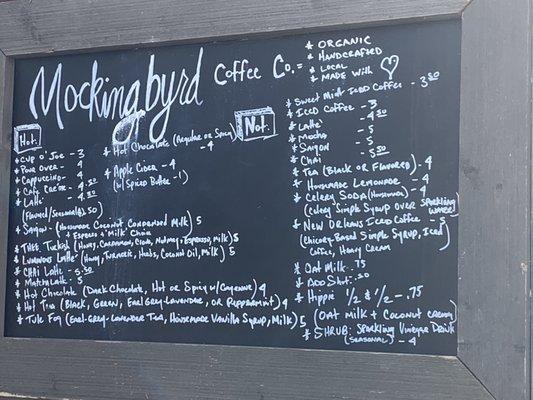 Mockingbyrd Coffee Co.
* ORGANIC
* HANDCRAFTED
* LOCAL
* MADE WITH
Hot.
* CUP O' JOE - 3
* Pour Over - 4
* Cappuccino - 4
* Cafe Creme - 4.50
* Latte - 4.50
(Flavored/Seasonal .50)
* Saigon - (Homemade Coconut Condensed Milk) 5
+ Espresso & Milk
* THEE Turkish (Honey, Cardamom, Clove, Nutmeg, Espresso, milk) 5
* Luminous Latte (Honey, Turmeric, Herbs, Coconut Oil, Milk) 5
* CHAI Latte - 5.50
* Matcha Latte - 5
* Hot Chocolate (Dark Chocolate, Hot or Spicy w/ Cayenne) 4
* Hot Tea (Black, Green, Earl Grey-Lavender, or Peppermint) 4
* Tule Fog (Earl-Grey-Lavender Tea, Housemade Vanilla Syrup, Milk) 5
* Hot Chocolate (Regular or Spicy)
- 4
* Apple Cider - 4
(w/ Spiced Butter - 1)
Not.
* Sweet Mint Iced Coffee - 3.50
* Iced Coffee - 3
* Latte - 4.50
* Mocha - 5
* Saigon - 5
* Chai - 5.50
* Tea (Black or Flavored) - 4
* Homemade Lemonade - 4
* Celery Soda (Homemade) - 4
(Celery Simple Syrup over Sparkling Water)
* New Orleans Iced Coffee - 5
(Chicory-Based Simple Syrup, Iced
Coffee, Heavy Cream
* Oat Milk - .75
* ADD Shot - .50
* Hippie 1/2 & 1/2 - .75
(OAT Milk + Coconut Cream)
* SHRUB: Sparkling Vinegar Drink
(SEASONAL) - 4